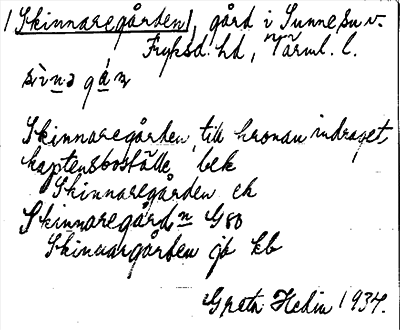 /Skinnaregården/, gård i Sunne su v.
Fryksd. hd, Värml. l.
Skinnaregården, till kronan indraget
kaptensboställe, bek
Skinnaregården ek
Skinnaregårdn G80
Skinnargården jb kb
Greta Hedin 1934.